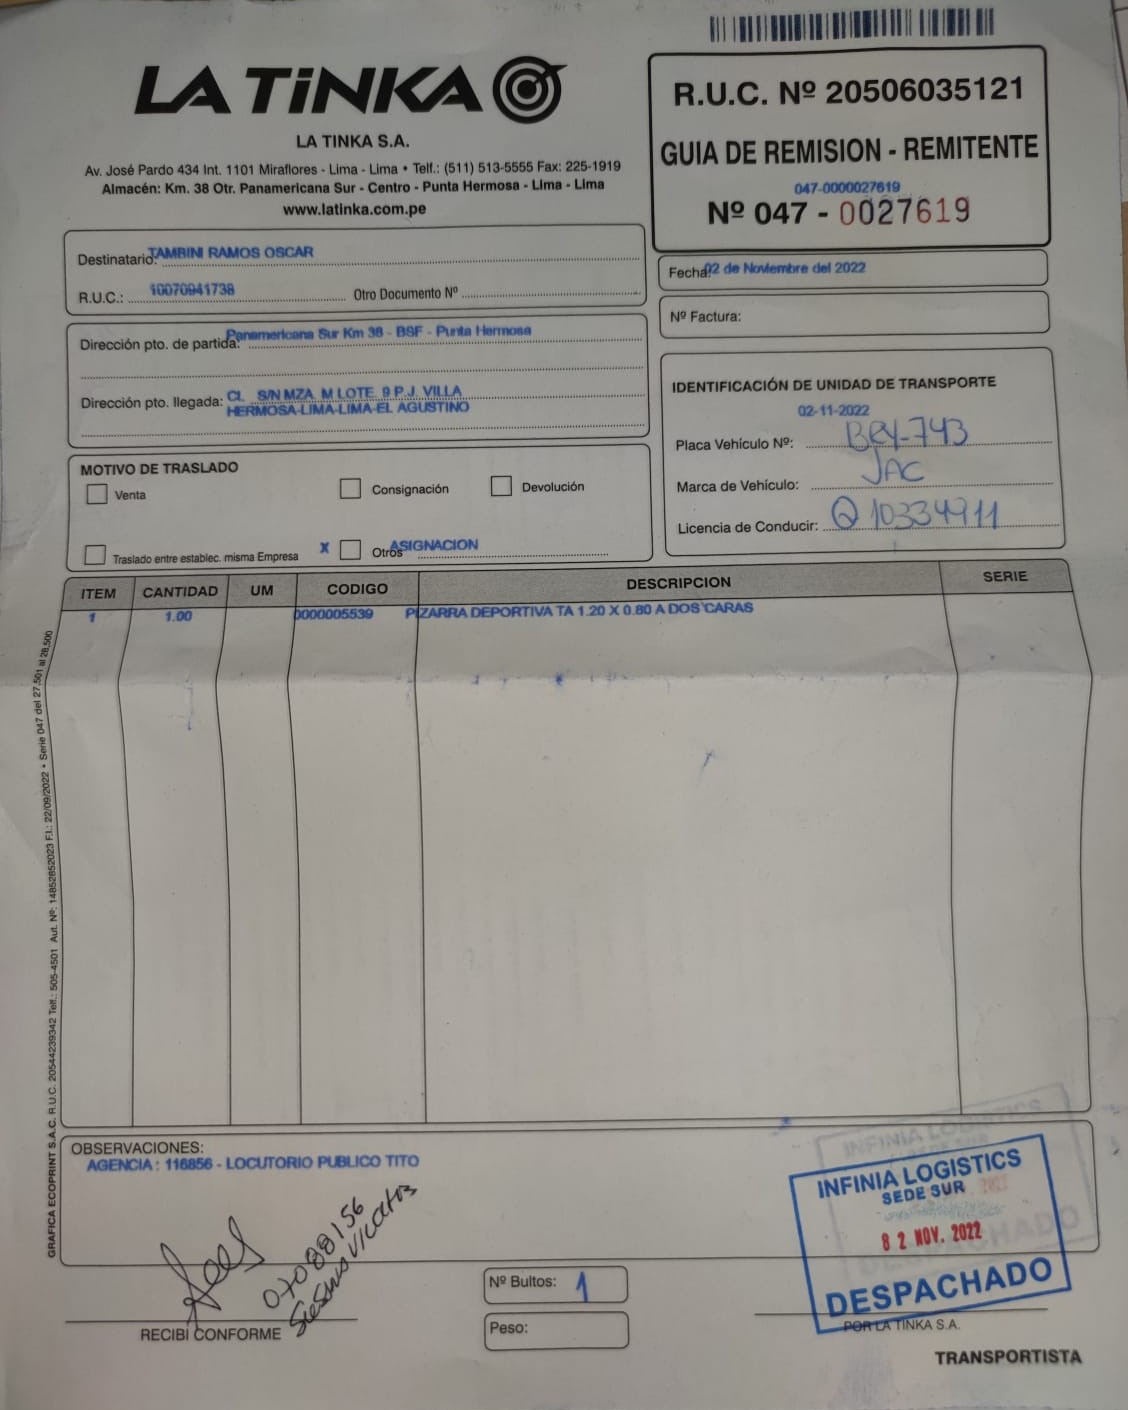 LA TiNKA
LA TINKA S.A.
Av. José Pardo 434 Int. 1101 Miraflores - Lima - Lima • Telf.: (511) 513-5555 Fax: 225-1919
Almacén: Km. 38 Otr. Panamericana Sur - Centro - Punta Hermosa - Lima - Lima
www.latinka.com.pe
R.U.C. Nº 20506035121
GUIA DE REMISION - REMITENTE
047-0000027619
Nº 047 - 0027619
Destinatario: TAMBINI RAMOS OSCAR
R.U.C.: 10070941738 Otro Documento Nº
Fecha: 02 de Noviembre del 2022
Nº Factura:
Dirección pto. de partida: Panamericana Sur Km 38 - BSF - Punta Hermosa
Dirección pto. llegada: CL S/N MZA. M LOTE. 9 P.J. VILLA
HERMOSA-LIMA-LIMA-EL AGUSTINO
IDENTIFICACIÓN DE UNIDAD DE TRANSPORTE
02-11-2022
Placa Vehículo Nº: BRY-743
Marca de Vehículo: JAC
Licencia de Conducir: Q10334911
MOTIVO DE TRASLADO
Venta Consignación Devolución
Traslado entre establec. misma Empresa X Otros ASIGNACION
ITEM CANTIDAD UM CODIGO DESCRIPCION SERIE
1 1.00 0000005539 PIZARRA DEPORTIVA TA 1.20 X 0.80 A DOS CARAS
GRAFICA ECOPRINT S.A.C. R.U.C. 20544239342 Telf.: 505-4501 Aut. Nº: 14852852023 F.I.: 22/09/2022 • Serie 047 del 27,501 al 28,500
OBSERVACIONES:
AGENCIA : 116856 - LOCUTORIO PUBLICO TITO
07088156
RECIBI CONFORME
Nº Bultos: 1
Peso:
INFINIA LOGISTICS
SEDE SUR
82 NOV. 2022
DESPACHADO
POR LA TINKA S.A.
TRANSPORTISTA